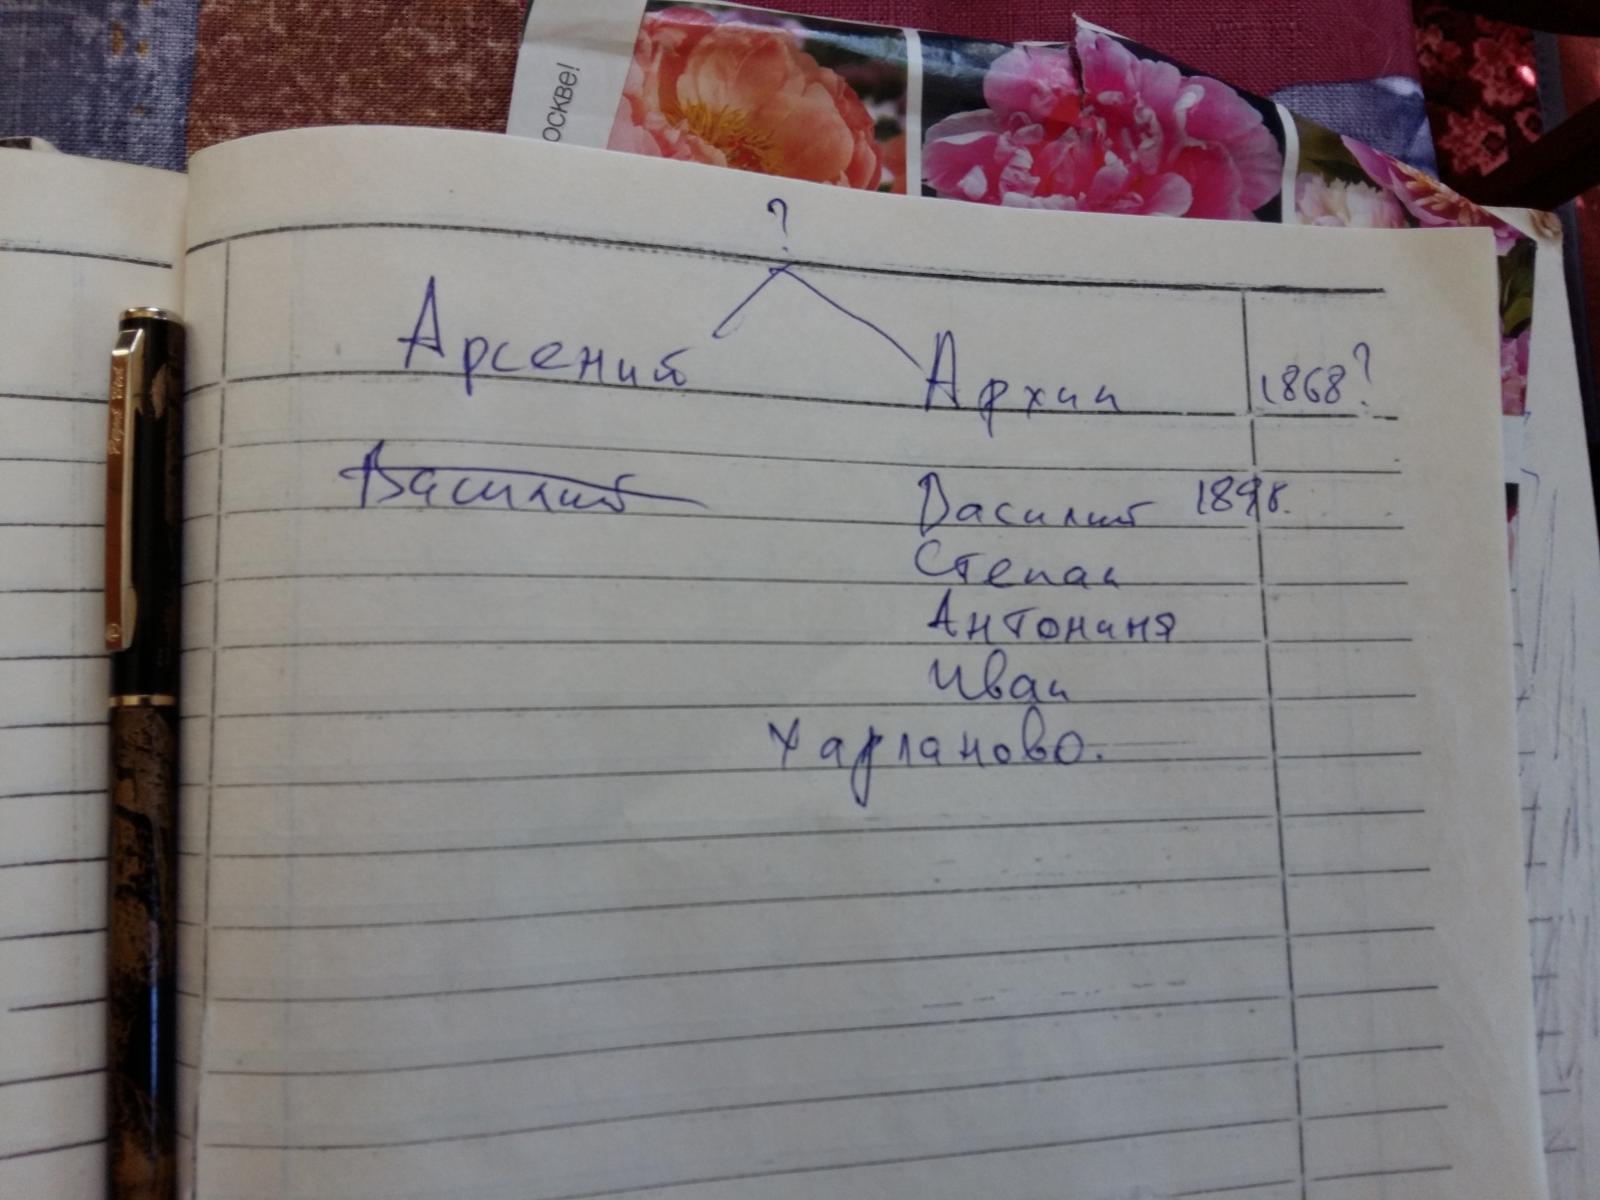 оскве!
?
Арсений Архип 1868?
Василий Василий 1898.
Степан
Антонина
Иван
Харланово.